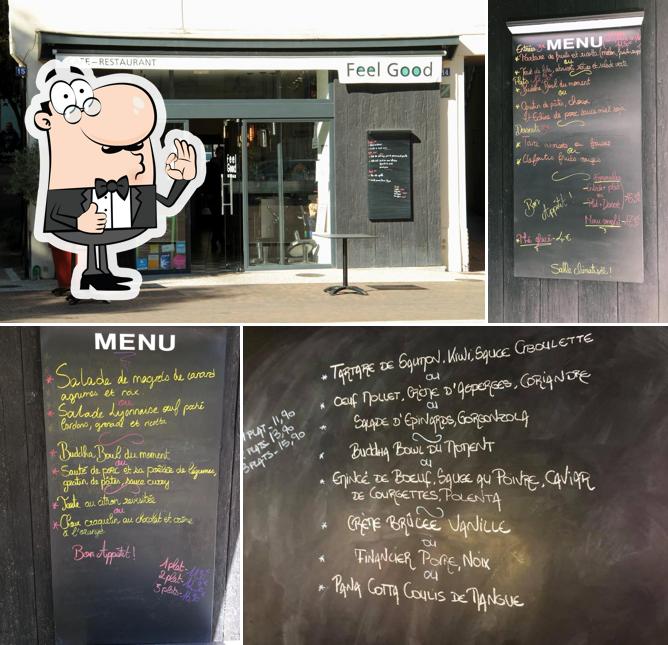 RESTAURANT
Feel Good
15
MENU
Entrées
ou
Plats
Buddha Bowl du moment
ou
Gratin de pâtes, chorizo
Desserts
ou
Clafoutis fruits rouges
Bon
Appétit !
Thé glacé - 4€
Salle climatisée !
MENU
* Salade de magrets de canard
agrumes et noix
ou
* Salade Lyonnaise œuf poché
lardons, grenade et ricotta
* Buddha Bowl du moment
ou
* Sauté de porc et sa poêlée de légumes,
gratin de pâtes, sauce curry
* Tarte au citron revisitée
ou
* Chou craquelin au chocolat et crème
à l'orange
Bon Appétit !
1 plat
2 plats
3 plats
* TARTARE DE SAUMON, KIWI, SAUCE CIBOULETTE
OU
* OEUF MOLLET, CRÈME D'ASPERGES, CORIANDRE
OU
* SALADE D'EPINARDS, GORGONZOLA
1 PLAT - 11,90
2 PLATS 13,90
3 PLATS - 15,90
* BUDDHA BOWL DU MOMENT
OU
* EMINCÉ DE BOEUF, SAUCE AU POIVRE, CAVIAR
DE COURGETTES, POLENTA
* CRÈME BRÛLÉE VANILLE
OU
* FINANCIER POIRE, NOIX
OU
* PANA COTTA COULIS DE MANGUE